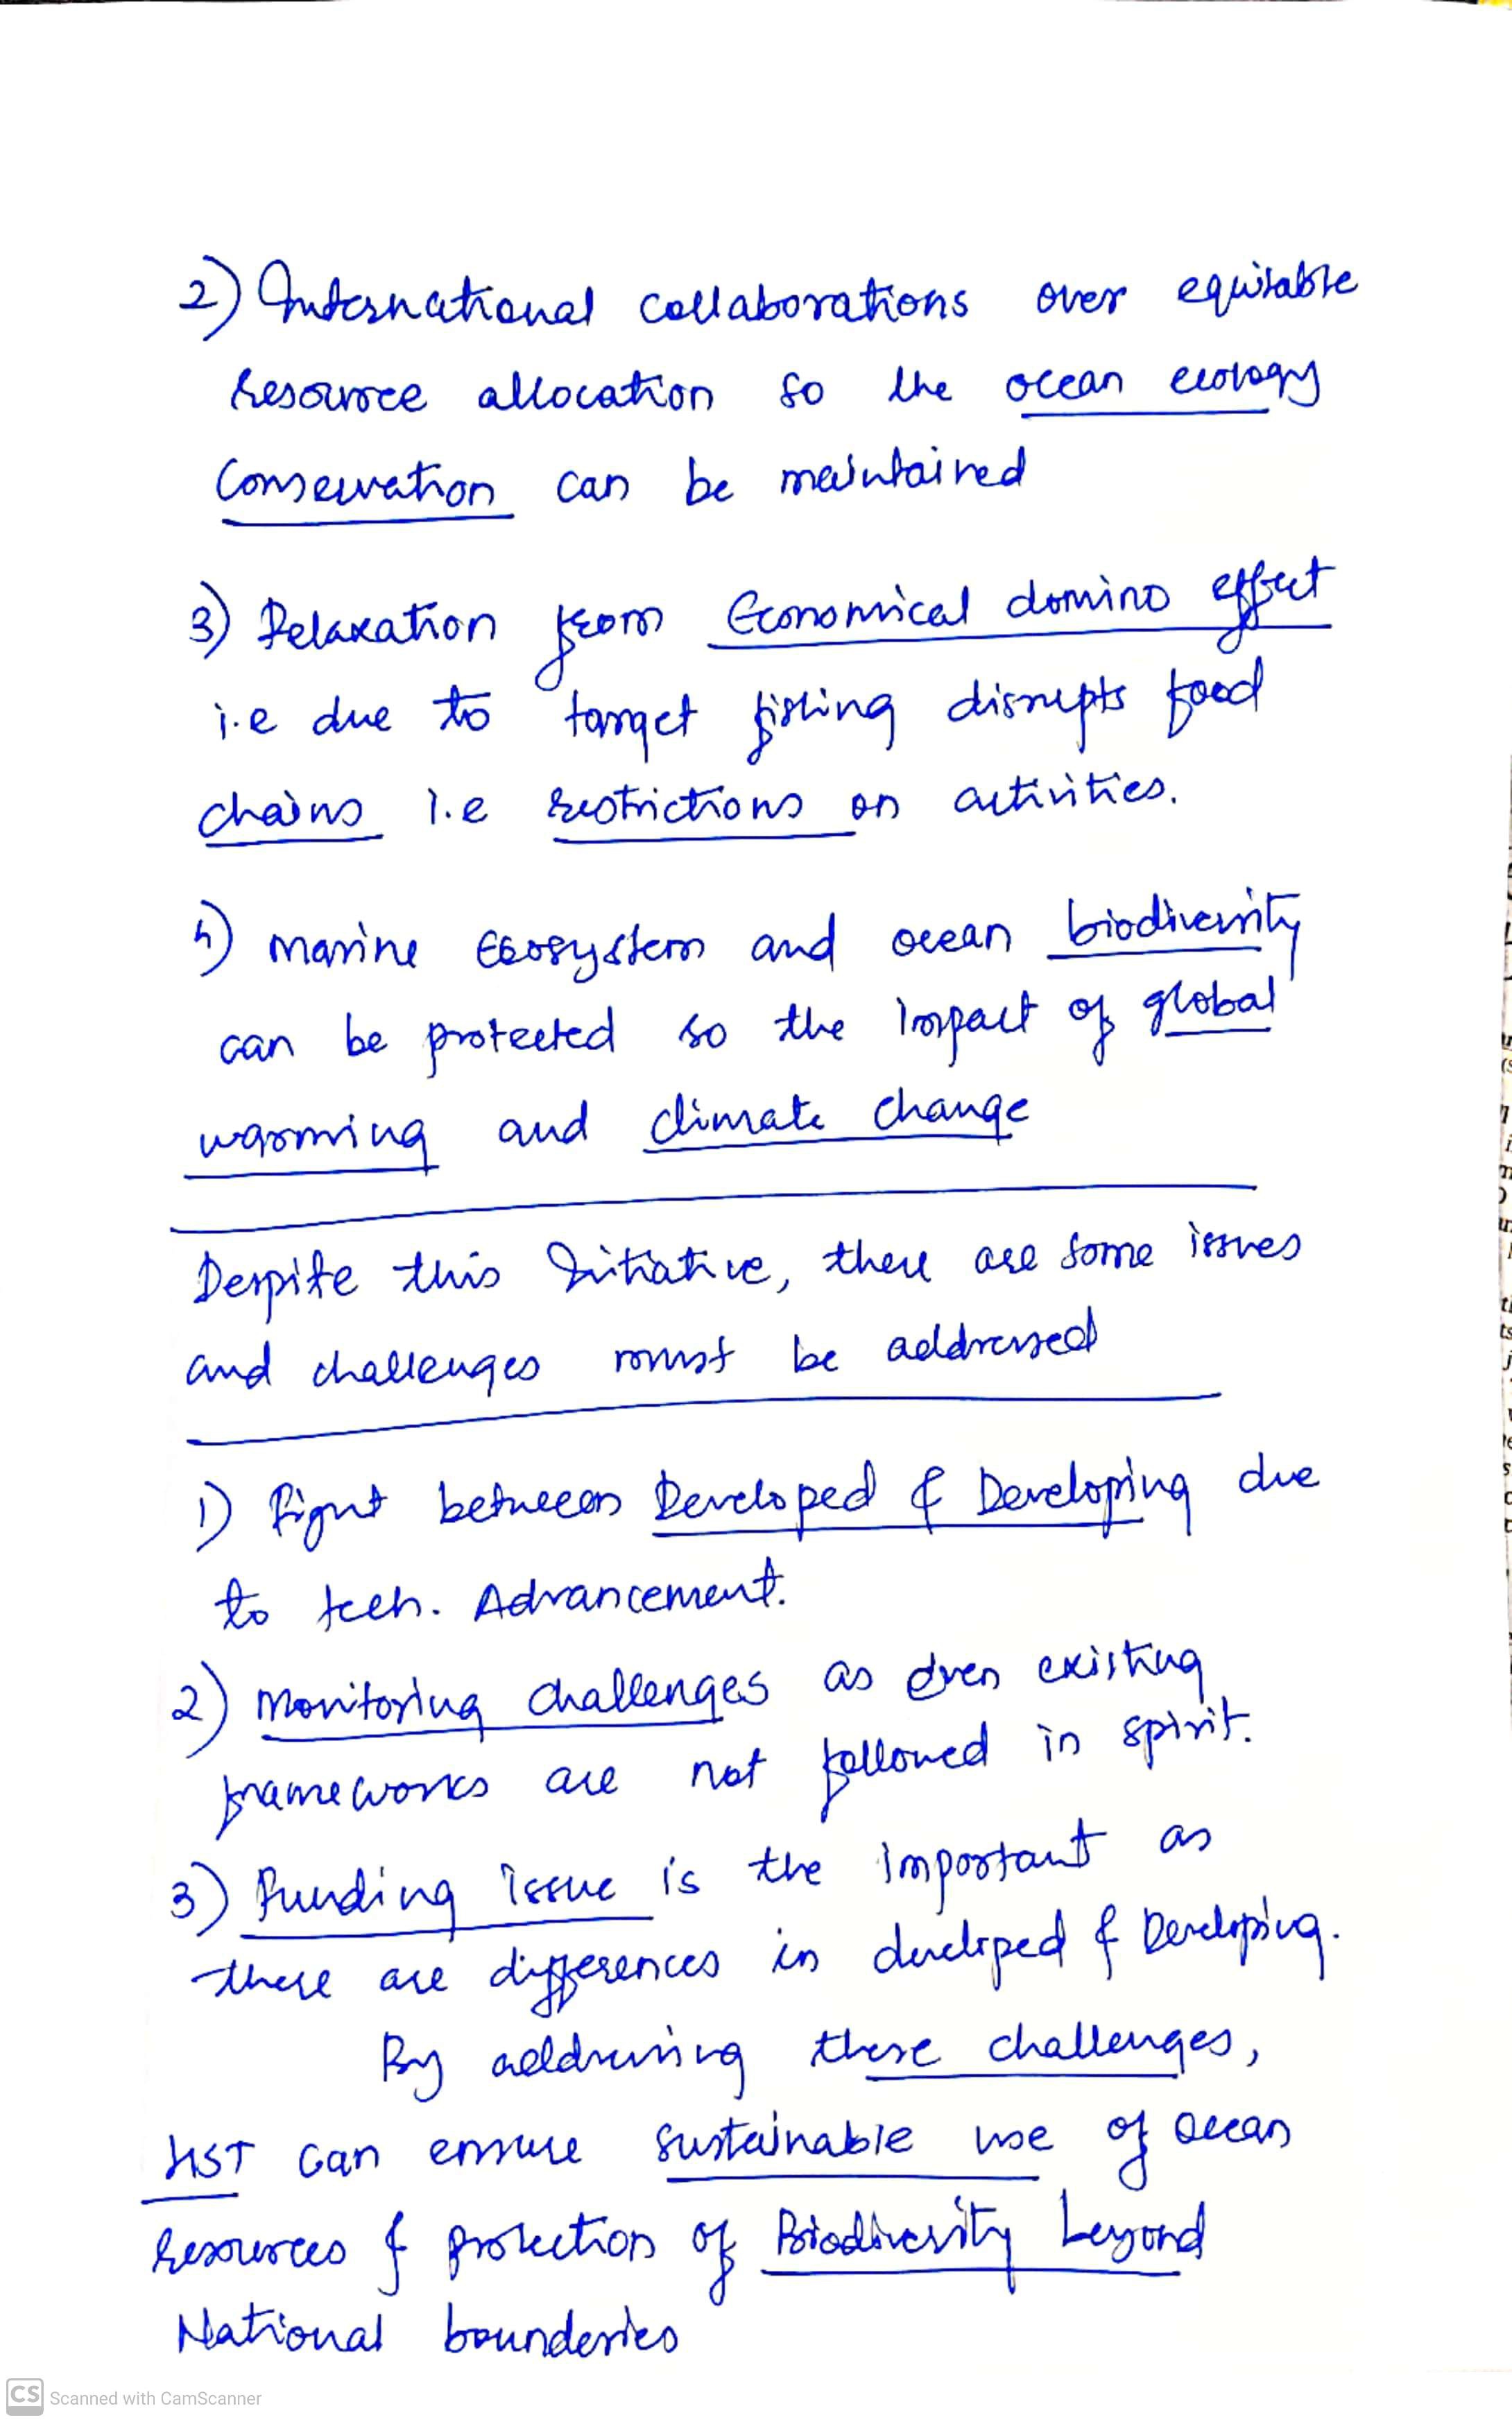 2) International collaborations over equitable
resource allocation so the ocean ecology
Conservation can be maintained
3) Relaxation from Economical domino effect
i.e due to target fishing disrupts food
chains i.e restrictions on activities.
4) marine Ecosystem and ocean biodiversity
can be protected so the impact of global
warming and climate change
Despite this Initiative, there are some issues
and challenges must be addressed
1) Fight between Developed & Developing due
to tech. Advancement.
2) Monitoring challenges as even existing
frameworks are not followed in spirit.
3) Funding issue is the important as
there are differences in developed & Developing.
By addressing these challenges,
HST can ensure sustainable use of ocean
resources & protection of Biodiversity beyond
National bounderies
CS Scanned with CamScanner